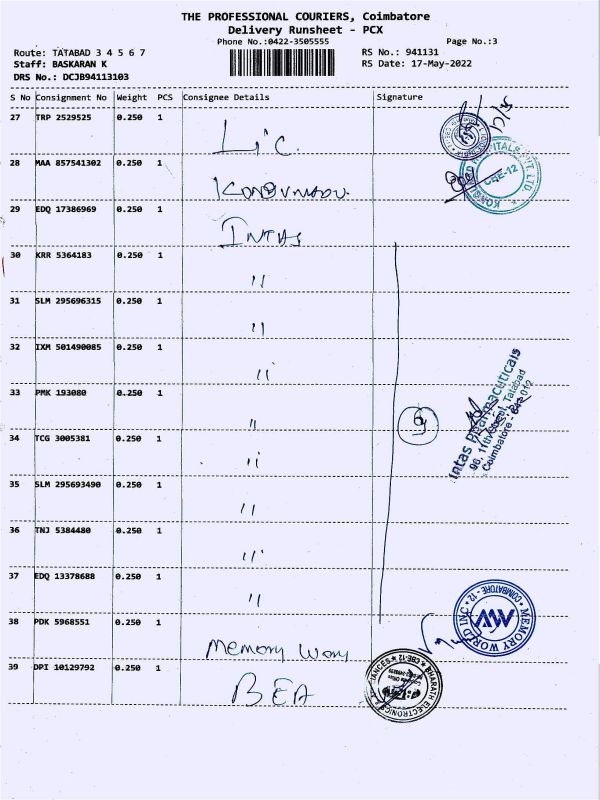 THE PROFESSIONAL COURIERS, Coimbatore
Delivery Runsheet - PCX
Phone No.:0422-3505555
Page No.:3
Route: TATABAD 3 4 5 6 7
RS No.: 941131
Staff: BASKARAN K
RS Date: 17-May-2022
DRS No.: DCJB94113103
S No Consignment No Weight PCS Consignee Details Signature
27 TRP 2529525 0.250 1
Lic.
28 MAA 857541302 0.250 1
CBE-12
29 EDQ 17386969 0.250 1
INTAS
30 KRR 5364183 0.250 1
"
31 SLM 295696315 0.250 1
"
32 IXM 501490085 0.250 1
"
33 PMK 193080 0.250 1
"
34 TCG 3005381 0.250 1
"
35 SLM 295693490 0.250 1
"
36 TNJ 5384480 0.250 1
"
37 EDQ 13378688 0.250 1
"
9
Intas Pharmaceuticals
96, 11th Street, Tatabad
Coimbatore - 641 012
38 PDK 5968551 0.250 1
Memory Wory
MEMORY WORLD INC * COIMBATORE - 12 *
MW
39 DPI 10129792 0.250 1
BEA
BHARATH ELECTRONICS & APPLIANCES * CBE-12 *